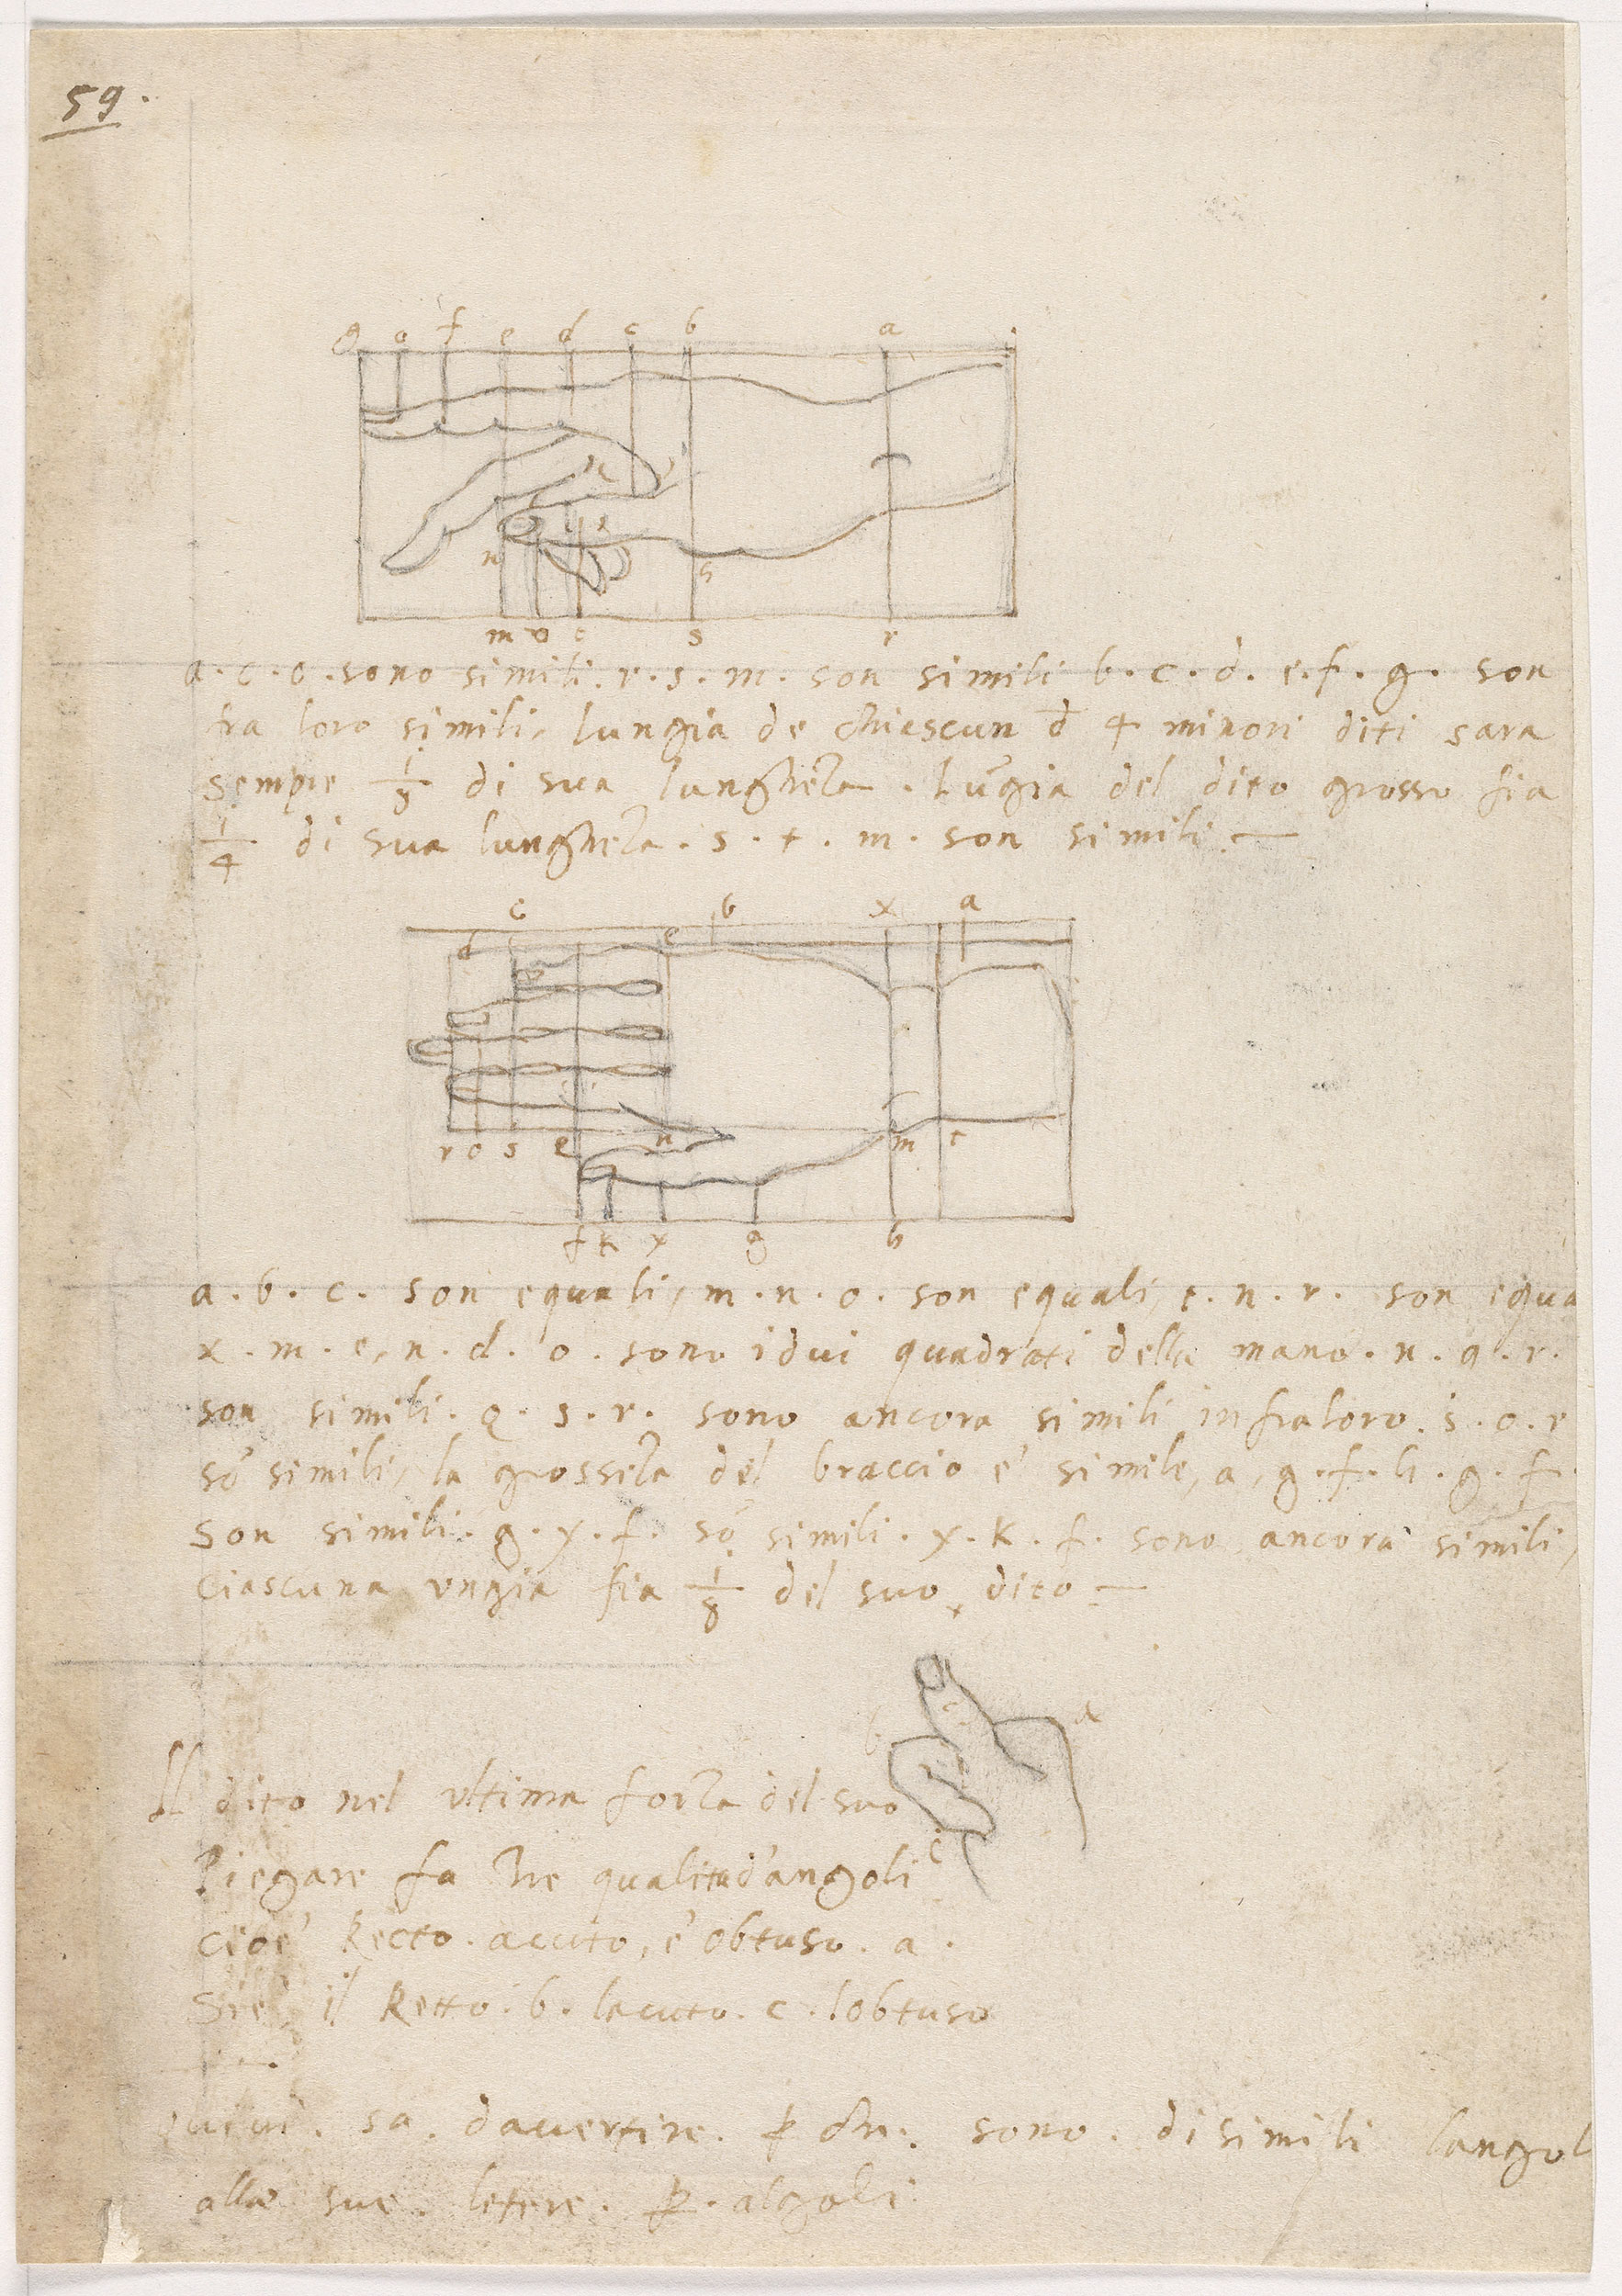 59.
g o f e d c b a
n s
m v c s r
a. c. o. sono simili. r. s. m. son simili b. c. d. e. f. g. son
fra loro simili, lungia de chiascun d̄ 4 minori diti sara
sempre 1/3 di sua lungheza. Lūgia del dito grosso fia
1/4 di sua lungheza. s. t. m. son simili.
c b x a
d e
r o s q n m t
f k y g h
a. b. c. son equali, m. n. o. son equali, t. n. r. son equa
x. m. e, n. d. o. sono i dui quadrati della mano. n. q. r.
son simili. q. s. r. sono ancora simili infraloro. s. o. r
sō simili, la grosseza del braccio e' simile, a, g. f. h. g. f.
son simili. g. y. f. sō simili. y. k. f. sono ancora simili,
ciascuna ungia fia 1/8 del suo dito
b a
c
Il dito nel ultima forza del suo
Piegare fa tre qualita d'angoli
cioe' Recto. accuto, e' obtuso. a.
Sie' il Retto. b. lacuto. c. lobtuso
sa. davertire. sono. disimili langol
alle sue. letere.